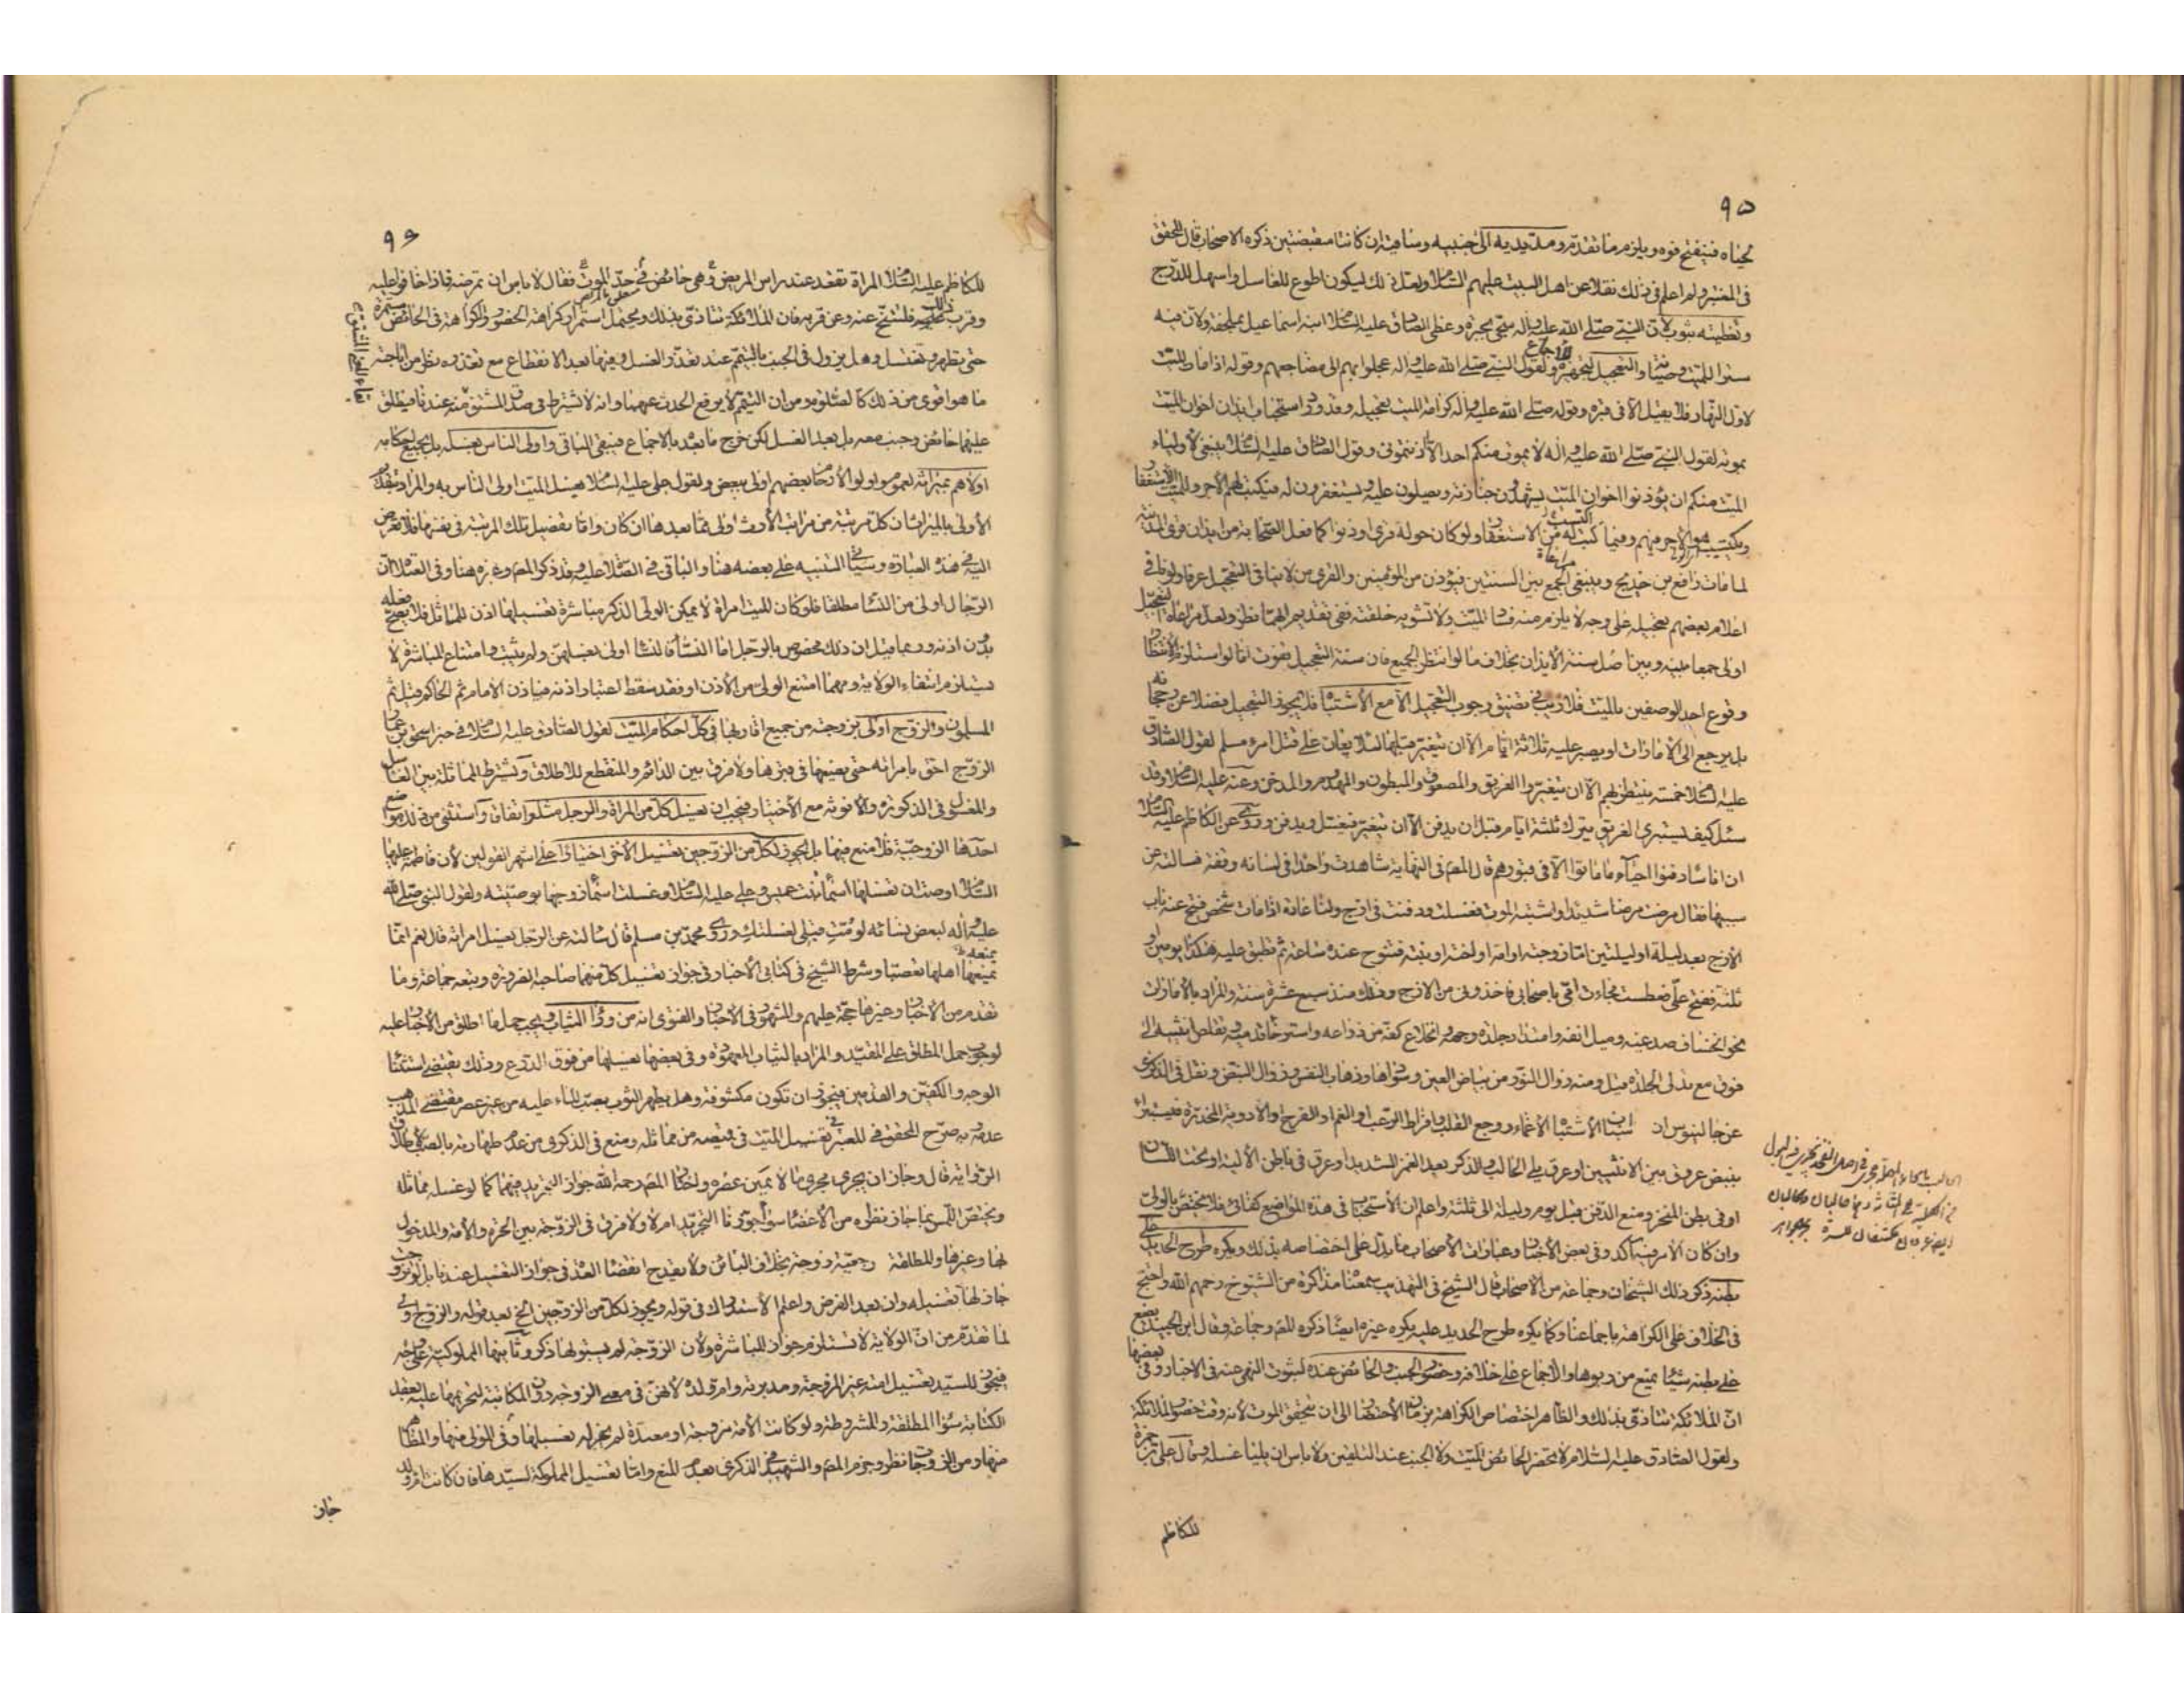 ٩٥
لحياه فينفتح فوه ويلزم ما تقدم ومد يديه الى جنبيه وساقيه ان كانتا منقبضتين ذكره الاصحاب قال المحقق
فى المعتبر ولم اعلم فى ذلك نقلا عن اهل البيت عليهم السلام ولعل ذلك ليكون اطوع للغاسل واسهل للدرج
وتغطيته بثوب لان النبى صلى الله عليه وآله سجى بحبرة وغطى الصادق عليه السلام ابنه اسماعيل بملحفة ولان فيه
سترا للميت وصيانة والتعجيل لتجهيزه للاجماع ولقول النبى صلى الله عليه وآله عجلوا بهم الى مضاجعهم وقوله اذا مات الميت
لاول النهار فلا يقيل الا فى قبره وقوله صلى الله عليه وآله كرامة الميت تعجيله وقد ورد استحباب ايذان اخوان الميت
بموته لقول النبى صلى الله عليه وآله لا يموت منكم احد الا آذنتمونى وقول الصادق عليه السلام ينبغى لاولياء
الميت منكم ان يؤذنوا اخوان الميت يشهدون جنازته ويصلون عليه ويستغفرون له فيكتب لهم الاجر وللميت الاستغفار
ويكتسب هو الاجر فيهم وفيما اكتسب له من الاستغفار ولو كان حوله قرى اوذنوا كما فعل الصحابة من ايذان قرى المدينة
لما مات رافع بن خديج وينبغى مراعاة الجمع بين السنتين فيؤذن من المؤمنين والقرى من لا ينافى التعجيل عرفا ولو نافى
اعلام بعضهم تعجيله على وجه لا يلزم منه فساد الميت ولا تشويه خلقته ففى تقديم ايهما نظر ولعل مراعاة التعجيل
اولى جمعا بينه وبين اصل سنة الايذان بخلاف ما لو انتظر الجميع فان سنة التعجيل يفوت اما لو استلزم الانتظار
وقوع احد الوصفين بالميت فلا ريب فى تضيق وجوب التعجيل الا مع الاشتباه فلا يجوز التعجيل فضلا عن رجحانه
بل يرجع الى الامارات او يصبر عليه ثلاثة ايام الا ان يتغير قبلها لئلا يعان على قتل امرء مسلم لقول الصادق
عليه السلام خمسة ينتظر بهم الا ان يتغيروا الغريق والمصعوق والمبطون والمهدوم والمدخن وعنه عليه السلام وقد
سئل كيف يستبرئ الغريق يترك ثلثة ايام قبل ان يدفن الا ان يتغير فيغسل ويدفن وروى عن الكاظم عليه السلام
ان اناسا دفنوا احياء ما ماتوا الا فى قبورهم قال المص فى النهاية شاهدت واحدا فى لسانه وقفة فسالته عن
سببها فقال مرضت مرضا شديدا واشتبه الموت فغسلت ودفنت فى ازج ولنا عادة اذا مات شخص فتح عنه باب
الازج بعد ليلة او ليلتين اما زوجته او امه او اخته او بنته فتنوح عنده ساعة ثم تطبق عليه هكذا يومين او
ثلثة ففتح على فعطست فجاءت امى باصحابى فاخذونى من الازج وذلك منذ سبع عشرة سنة والمراد بالامارات
نحو انخساف صدغيه وميل انفه وامتداد جلدة وجهه وانخلاع كفه من ذراعه واسترخاء قدميه وتقلص انثييه الى
فوق مع تدلى الجلدة قيل ومنه زوال النور من بياض العين وسوادها وذهاب النفس وزوال النبض ونقل فى الذكرى
عن جالينوس ان اسباب الاشتباه الاغماء ووجع القلب وافراط الرعب او الغم او الفرح او الادوية المخدرة فيستبرأ
بنبض عروق بين الانثيين او عرق يلى الحالب والذكر بعد الغمز الشديد او عرق فى باطن الالية او تحت اللسان
او فى بطن المنخر ومنع الدفن قبل يوم وليلة الى ثلثة واعلم ان الاستحباب فى هذه المواضع كفائى فلا يختص بالولى
وان كان الامر فيه آكد وفى بعض الاخبار وعبارات الاصحاب ما يدل على اختصاصه بذلك ويكره طرح الحديد على
بطنه ذكر ذلك الشيخان وجماعة من الاصحاب قال الشيخ فى التهذيب سمعناه مذاكرة من الشيوخ رحمهم الله واحتج
فى الخلاف على الكراهة باجماعنا وكما يكره طرح الحديد عليه يكره غيره ايضا ذكره المص وجماعة وقال ابن الجنيد يضع
على بطنه شيئا يمنع من ربوها والاجماع على خلافه وحضور الجنب والحائض عنده لثبوت النهى عنه فى الاخبار وفى بعضها
ان الملائكة تتاذى بذلك والظاهر اختصاص الكراهة بزمان الاحتضار الى ان يتحقق الموت لانه وقت حضور الملائكة
ولقول الصادق عليه السلام لا تحضر الحائض الميت ولا الجنب عند التلقين ولا باس ان يليا غسله وقال على بن حمزة
للكاظم
٩٦
للكاظم عليه السلام المراة تقعد عند راس المريض وهى حائض فى حد الموت فقال لا باس ان تمرضه فاذا خافوا عليه
وقرب ذلك فلتتنح عنه وعن قربه فان الملائكة تتاذى بذلك ويحتمل استمرار كراهة الحضور والكراهة فى الحائض مستمرة
حتى تطهر وتغتسل وهل يزول فى الجنب بالتيمم عند تعذر الغسل وفيها بعد الانقطاع مع تعذره نظر من اباحته
ما هو اقوى من ذلك كالصلوة ومن ان التيمم لا يرفع الحدث عنهما وانه لا يشترط فى صدق المشتق منه عندنا فيطلق
عليهما حائض وجنب معه بل بعد الغسل لكن خرج ما بعده بالاجماع فيبقى الباقى واولى الناس بغسله بل بجميع احكامه
اولاهم بميراثه لعموم واولوا الارحام بعضهم اولى ببعض ولقول على عليه السلام يغسل الميت اولى الناس به والمراد بتقديم
الاولى بالميراث ان كل مرتبة من مراتب الارث اولى مما بعدها ان كان واما تفضيل تلك المرتبة فى نفسها فلا تعرض
اليه فى هذه العبارة وسياتى التنبيه على بعضه هنا والباقى فى الصلاة عليه وقد ذكر المص وغيره هنا وفى الصلاة ان
الرجال اولى من النساء مطلقا فلو كان الميت امراة لا يمكن الولى الذكر مباشرة تغسيلها اذن للمماثل فلا يصح فعله
بدون اذنه وربما قيل ان ذلك مخصوص بالرجل اما النساء فالنساء اولى بغسلهن ولم يثبت وامتناع المباشرة لا
يستلزم انتفاء الولاية ومهما امتنع الولى من الاذن او فقد سقط اعتبار اذنه فياذن الامام ثم الحاكم وقيل ثم
المسلمون والزوج اولى بزوجته من جميع اقاربها فى كل احكام الميت لقول الصادق عليه السلام فى خبر اسحق بن عمار
الزوج احق بامراته حتى يضعها فى قبرها ولا فرق بين الدائم والمنقطع للاطلاق ويشترط المماثلة بين الغاسل
والمغسول فى الذكورة والانوثة مع الاختيار فيجب ان يغسل كل من المراة والرجل مثله اتفاقا واستثنى من ذلك مواضع
احدها الزوجية فلا منع فيها بل يجوز لكل من الزوجين تغسيل الاخر اختيارا على اشهر القولين لان فاطمة عليها
السلام اوصت ان تغسلها اسماء بنت عميس وعلى عليه السلام وغسلت اسماء زوجها بوصيته ولقول النبى صلى الله
عليه وآله لبعض نسائه لو مت قبلى لغسلتك وروى محمد بن مسلم قال سالته عن الرجل يغسل امراته قال نعم انما
يمنعها اهلها تعصبا وشرط الشيخ فى كتابى الاخبار فى جواز تغسيل كل منهما صاحبه الضرورة وتبعه جماعة وما
تقدم من الاخبار وغيرها حجة عليهم والمشهور فى الاخبار والفتوى انه من وراء الثياب ويجب حمل ما اطلق من الاخبار عليه
لوجوب حمل المطلق على المقيد والمراد بالثياب المعهودة وفى بعضها يغسلها من فوق الدرع وذلك يقتضى استثناء
الوجه والكفين والقدمين فيجوز ان تكون مكشوفة وهل يطهر الثوب بصب الماء عليه من غير عصر مقتضى المذهب
عدمه وبه صرح المحقق فى المعتبر فى تغسيل الميت فى قميصه من مماثله ومنع فى الذكرى من عدم طهارته بالصب لاطلاق
الرواية قال وجاز ان يجرى مجرى ما لا يمكن عصره واختار المص رحمه الله جواز التجريد فيهما كما لو غسله مماثله
ويختص اللمس بما جاز نظره من الاعضاء سواء جوزنا التجريد ام لا ولا فرق فى الزوجة بين الحرة والامة والمدخول
بها وغيرها والمطلقة رجعية زوجة بخلاف البائن ولا يقدح انقضاء العدة فى جواز التغسيل عندنا بل لو تزوجت
جاز لها تغسيله وان بعد الفرض واعلم الاستدراك فى قوله ويجوز لكل من الزوجين الخ بعد قوله والزوج اولى
لما تقدم من ان الولاية لا تستلزم جواز المباشرة ولان الزوجة لم يسبق لها ذكر وثانيها المملوكية
فيجوز للسيد تغسيل امته غير المزوجة ومدبرته وام ولده لانهن فى معنى الزوجة دون المكاتبة لتحريمها عليه بعقد
الكتابة سواء المطلقة والمشروطة ولو كانت الامة مزوجة او معتدة لم يجز له تغسيلها وفى المولى منها والمظاهر
منها ومن الزوجات نظر وجزم المص والشهيد فى الذكرى بعدم المنع واما تغسيل المملوكة لسيدها فان كانت ام ولد
جاز